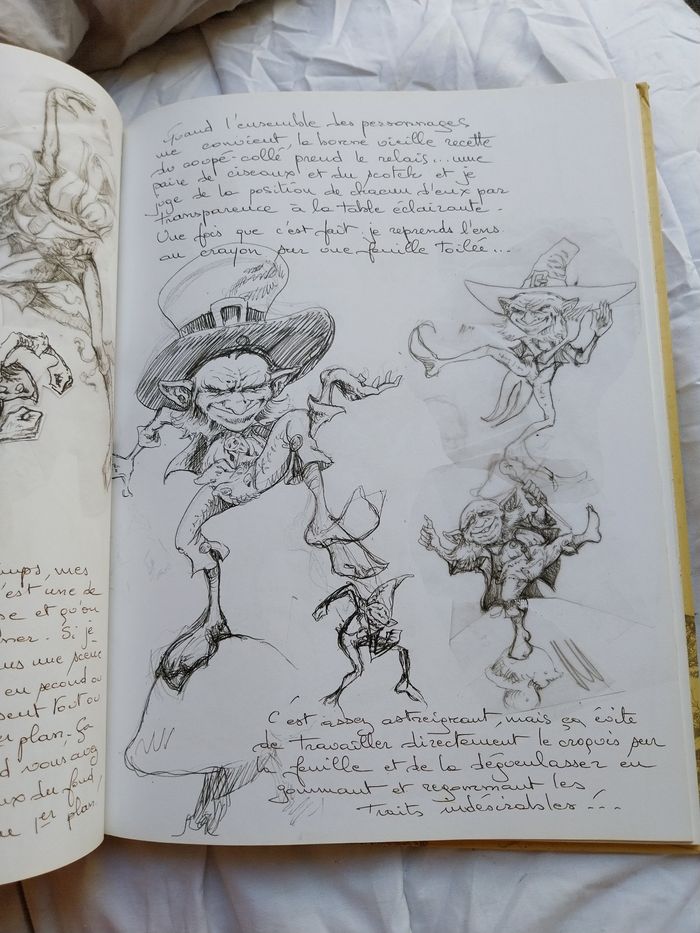 Quand l'ensemble des personnages
me convient, la bonne vieille recette
du coupé-collé prend le relais... une
paire de ciseaux et du scotch et je
juge de la position de chacun d'eux par
transparence à la table éclairante.
Une fois que c'est fait, je reprends l'ens
au crayon sur une feuille toilée...
mes
c'est une de
se et qu'on
ner. Si je
une scène
en second ou
sent tout ou
plan. Ça
d vous avez
ux du fond,
1er plan.
C'est assez astreignant, mais ça évite
de travailler directement le croquis sur
la feuille et de la dégueulasser en
gommant et regommant les
traits indésirables...